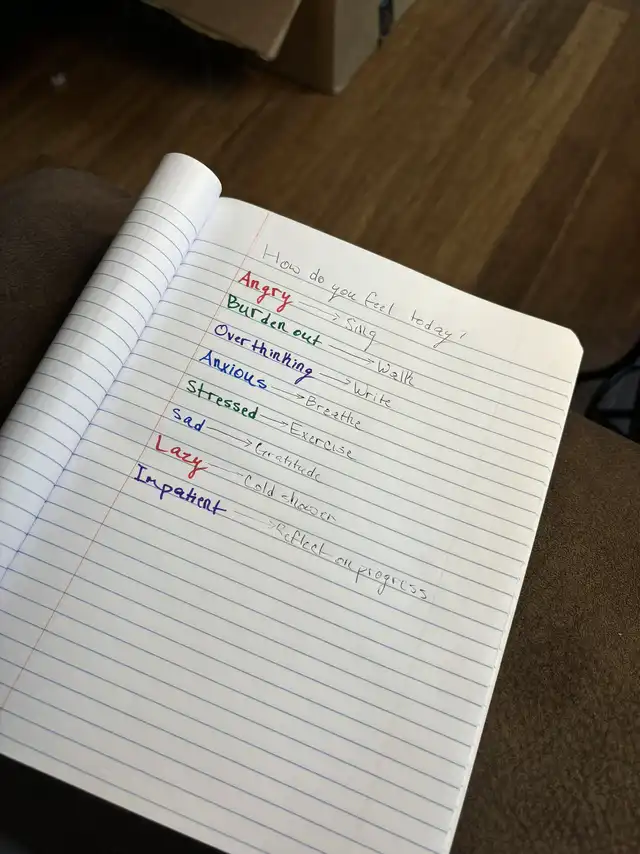 How do you feel today?
Angry → Sing
Burden out → Walk
Overthinking → Write
Anxious → Breathe
Stressed → Exercise
Sad → Gratitude
Lazy → Cold shower
Impatient → Reflect on progress